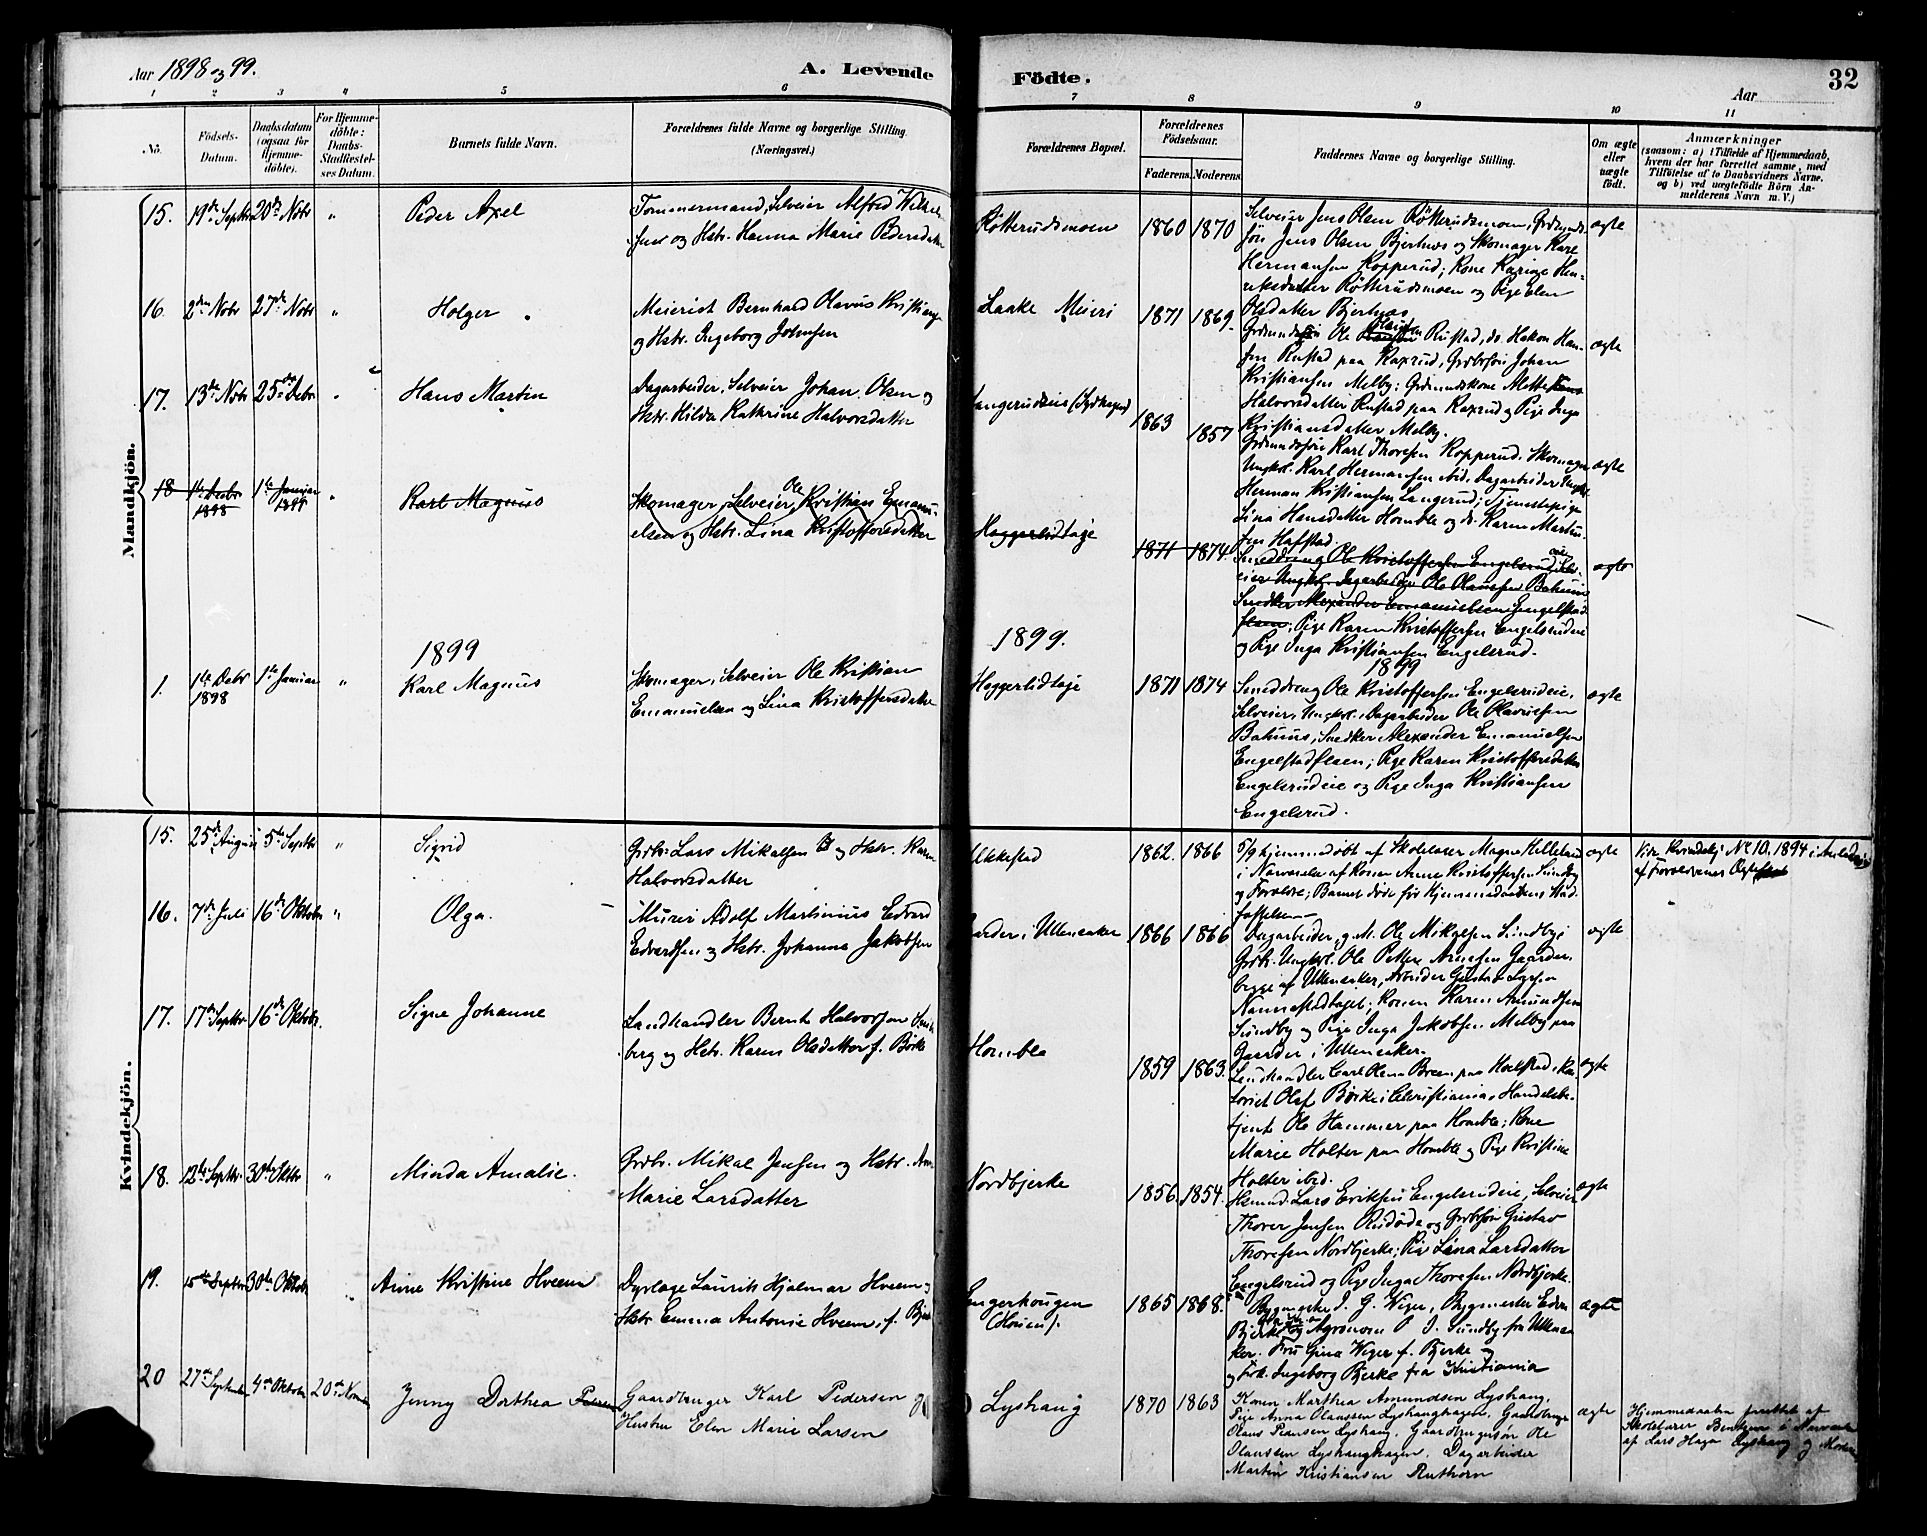 Aar 1898 og 99.
A. Levende
Födte.
Aar
32
1 2 3 4 5 6 7 8 9 10 11
Nö.
Födsels-Datum.
Daabsdatum (ogsaa for Hjemmedöbte).
For Hjemmedöbte: Daabs-Stadfæstelses Datum.
Barnets fulde Navn.
Forældrenes fulde Navne og borgerlige Stilling.
(Næringsvei.)
Forældrenes Bopæl.
Forældrenes Födselsaar.
Faderens.
Moderens.
Faddernes Navne og borgerlige Stilling.
Om ægte eller uægte födt.
Anmærkninger
(saasom: a) i Tilfælde af Hjemmedaab, hvem der har forrettet samme, med Tilföielse af to Daabsvidners Navne, og b) ved uægtefödte Börn Anmelderens Navn m. V.)
Mandkjön.
15. 19de Septbr 20de Novbr " Peder Axel
Tømmermand, Selveier Alfred Wilhelm-
sen og Hstr. Hanna Marie Pedersdatter
Røtterudsmoen 1860 1870
Selveier Jens Olsen Røtterudsmoen, Grdmands-
søn Jens Olsen Bjerknes og Skomager Kare
Hermansen Kopperud; Kone Karine Hen-
riksdatter Røtterudsmoen og Pige Elen
Olsdatter Bjerknes
ægte
16. 2den Novbr 27de Novbr " Holger
Meierist Bernhard Olavus Kristiansen
og Hstr. Ingeborg Johnsen
Laake Meieri 1871 1869.
Grdmandssøn Ole Rustad, do. Hakon Han-
sen Rustad paa Raxrud, Grdbrsøn Johan
Kristiansen Melby; Grdmandskone Mette
Halvorsdatter Rustad paa Raxrud og Pige Inga
Kristiansdatter Melby.
ægte
17. 13de Novbr 25de Debr " Hans Martin
Dagarbeider, Selveier Johan Olsen og
Hstr. Hilda Kathrine Halvorsdatter
Langerudseie 1863 1857
Grdmandssøn Karl Thoresen Kopperud. Skomager
Ungkl. Karl Hermansen ibid. Dagarbeider Ungkl.
Herman Kristiansen Langerud; Tjenestepige
Lina Hansdatter Homble og do. Karen Martin-
sen Hafstad.
ægte
18 1ste Decbr 1898 1ste Januar 1899 " Karl Magnus
Skomager, Selveier, Ole Kristian Emanu-
elsen og Hstr. Lina Kristoffersdatter
Heggerlidtaje 1871 1874
Smeddreng Ole Kristoffersen Engelsrudeie, Sel-
veier Ungkl. Dagarbeider Ole Olavesen Bahuus
Snedker Alexander Emanuelsen Engelstad-
flaen; Pige Karen Kristoffersen Engelsrudeie
og Pige Inga Kristiansen Engelsrud.
ægte
1899
1899.
1899
1. 1ste Debr 1898 1ste Januar " Karl Magnus
Skomager, Selveier Ole Kristian
Emanuelsen og Lina Kristoffersdatter
Heggerlidtaje 1871 1874
Smeddreng Ole Kristoffersen Engelsrudeie,
Selveier, Ungkl. Dagarbeider Ole Olavesen
Bahuus, Snedker Alexander Emanuelsen
Engelstadflaen; Pige Karen Kristoffersdatter
Engelsrudeie og Pige Inga Kristiansen
Engelsrud.
ægte
Kvindekjön.
15. 25de August 5te Septbr " Sigrid
Grdbr. Lars Mikalsen og Hstr. Karen
Halvorsdatter
Ukkestad 1862. 1866
5/9 hjemmedøbt af Skolelærer Magne Helleland
i Nærværelse af Konen Anne Kristoffersen Sundby
og Forældre; Barnet døde før Hjemmedaabens Stad-
fæstelse
ægte
Vide Kvindekj. No 10. 1894 i Anledning
af Forældrenes Ægteskab
16. 7de Juli 16de Oktober " Olga.
Murer Adolf Martinius Edvard
Edvardsen og Hstr. Johanna Jakobsen
Gaarder i Ullensaker 1866 1866
Dagarbeider, g. M. Ole Mikalsen Sundby;
Grdb. Ungkl. Ole Petter Arnesen Gaarder
begge af Ullensaker, Arbeider Gustav
Nannestadtaget; Konen Karen Amundsen
Sundby og Pige Inga Jakobsen Melby paa
Gaarder i Ullensaker.
ægte
17. 17de Septbr. 16de Oktobr. Signe Johanne
Landhandler Bernt Halvorsen
berg og Hstr. Karen Olsdatter f. Børke
Homble 1859 1863.
Landhandler Carl Olsen Breen paa Holstad,
Olaf Børke i Christiania, Handelsbe-
tjent Ole Hammer paa Homble; Kone
Marie Holter paa Homble og Pige Kristine
Holter ibid.
ægte
18. 12te Septbr. 30te Oktbr " Minda Amalie.
Grdbr. Mikal Jensen og Hstr. Ane
Marie Larsdatter
Nordbjerke 1856. 1854.
Husmd. Lars Eriksen Engelsrudeie, Selveier
Thorer Jensen Rudøde og Grdbrsøn Gustav
Thoresen Nordbjerke; Pige Lina Larsdatter
Engelsrud og Pige Inga Thoresen Nordbjerke.
ægte
19. 15de Septbr 30te Oktobr " Anne Kristine Hveem
Dyrlæge Laurits Hjalmar Hveem og
Hstr. Emma Antonie Hveem, f. Bjerke
Engerhougen
(Moien). 1865 1868.
Bygmester J. G. Weger, Bygmester Edvin
Bjerke og Agronom P. J. Sundby fra Ullensa-
ker. Fru Gina Weger f. Bjerke og
Frk. Ingeborg Bjerke fra Kristiania
ægte
20 27de September 4de Oktober 20de Novbr Jenny Dorthea
Gaardbruger Karl Pedersen og
Hustru Elen Marie Larsen
Lyshaug 1870 1863
Konen Marthea Amundsen Lyshaug,
Pige Anna Olaussen Lyshaughagen, Gaardbruger
Olaus Pedersen Lyshaug, Gaardbrugersøn Ole
Olaussen Lyshaughagen. Dagarbeider
Martin Kristiansen Ruthorn
ægte
Hjemmedaaben forrettet af
Skolelærer Bentzen i Nærværelse
af Lars Haga Lyshaug og Moderen